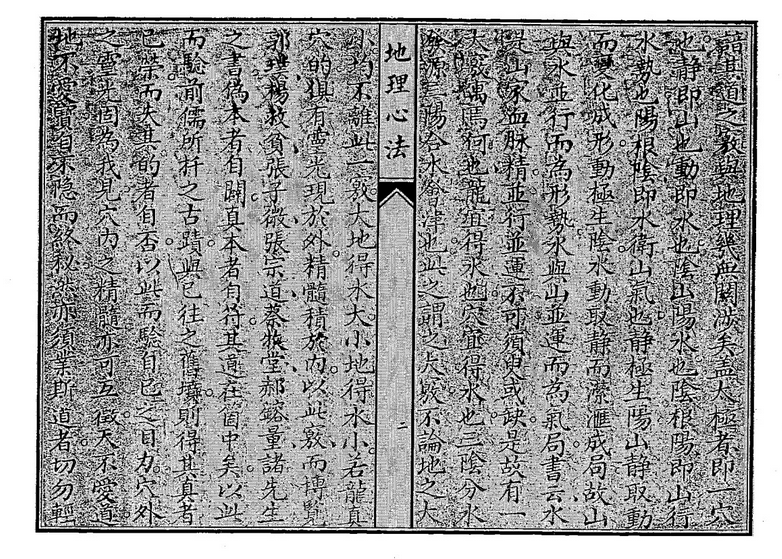 籍其道之敎與地理幾無關涉矣盖太極者即一穴
也静即山也動即水也陰山陽水也陰根陽即山行
水勢也陽根陰即水衛山氣也静極生陽山静取動
而變化成形動極生陰水動取静而瀠滙成局故山
與水並行而為形勢水與山並運而為氣局書云水
是山家血脉精並行並運不可須臾或缺是故有一
太極陽行也龍宜得水也穴宜得水也三陰分水
發源三陽合水會津也此之謂之大竅不論地之大
小均不離此一竅大地得水大小地得水小若龍真
穴的俱有靈光現於外精髓積於内以此竅而博覽
郭璞楊救貧張子微張宗道蔡牧堂郝鎔量諸先生
之書僞本者自闢真本者自符其道在箇中矣以此
而驗前儒所扦之古蹟與已往之舊壙則得其真者
已榮而失其的者自否以此而驗自己之目力穴外
之靈光固為我見穴内之精髓亦可互徵天不愛道
地不愛寳自深隐而終秘然亦須業斯道者切勿輕
地理心法
二